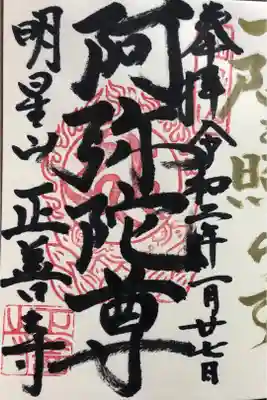 一隅を照らす
奉拝 令和二年一月廿七日
阿弥陀尊
明星山 正善寺